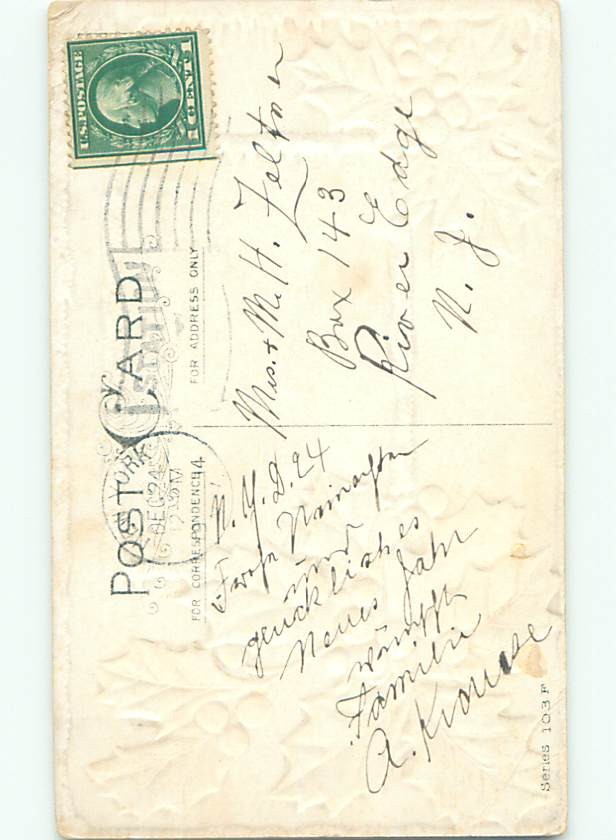 POST CARD
FOR CORRESPONDENCE
FOR ADDRESS ONLY
U.S. POSTAGE
1 CENT 1
YORK
DEC 24
STATION
N. Y. D. 24
Frohe Weinachten
und
glückliches
Neues Jahr
wünscht
Familie
A. Krause
Mrs. + Mr. H. Feltner
Box 143
River Edge
N. J.
Series 103 F